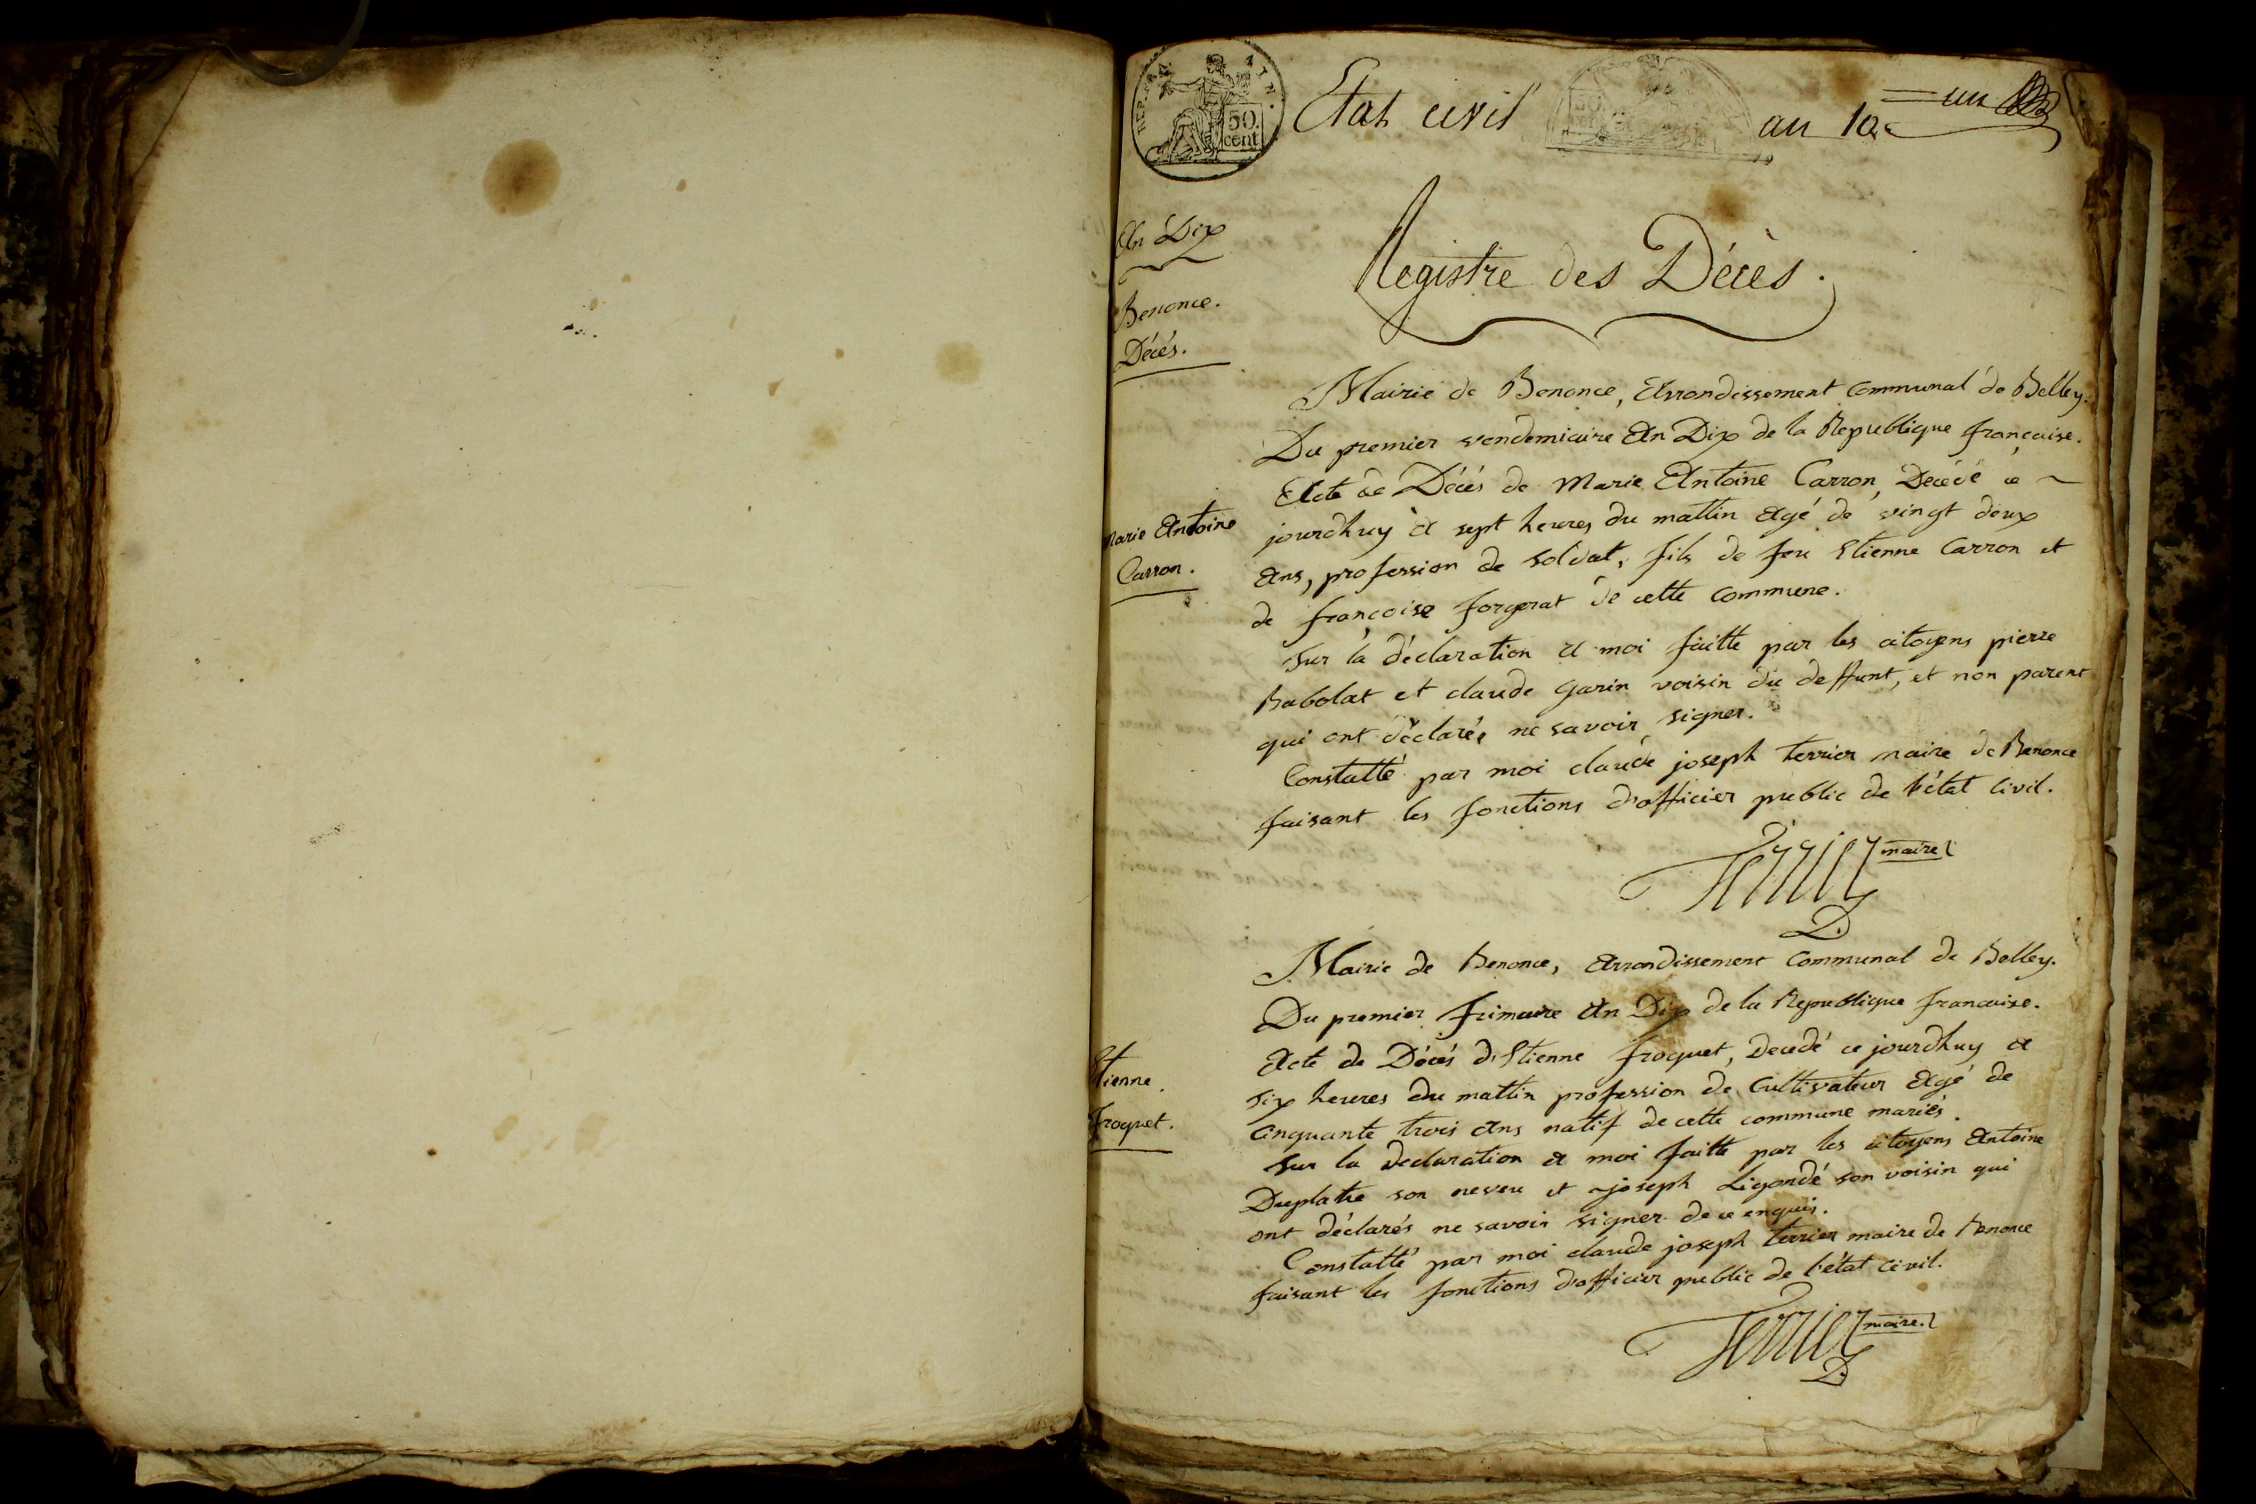 REP. FRA. 50 cent
Etat civil
an 10e
un
An Dix
Benonce.
Décés.
Registre des Décès.
Mairie de Benonce, Arrondissement Communal de Belley.
Du premier vendemiaire An Dix de la Republique francaise.
Marie Antoine
Carron.
Acte de Décés de Marie Antoine Carron, Decédé ce
jourdhuy à sept heures du mattin agé de vingt deux
ans, profession de soldat, fils de feu Etienne Carron et
de francoise forgerat de cette Commune.
Sur la déclaration a moi faitte par les citoyens pierre
Babolat et claude garin voisin du deffunt, et non parent
qui ont déclarés ne savoir signer.
Constatté par moi claude joseph terrier maire de Benonce
faisant les fonctions d'officier public de l'état Civil.
Terrier maire
Mairie de Benonce, Arrondissement Communal de Belley.
Du premier frimaire An Dix de la Republique francaise.
Etienne
Froquet.
Acte de Décés d'Etienne froquet, Decedé ce jourdhuy a
six heures du mattin profession de Cultivateur agé de
Cinquante trois ans natif de cette commune mariés.
Sur la declaration a moi faitte par les citoyens Antoine
Duplatre son neveu et joseph Ligondé son voisin qui
ont déclarés ne savoir signer de ce enquis.
Constatté par moi claude joseph terrier maire de Benonce
faisant les fonctions d'officier public de l'état Civil.
Terrier maire.